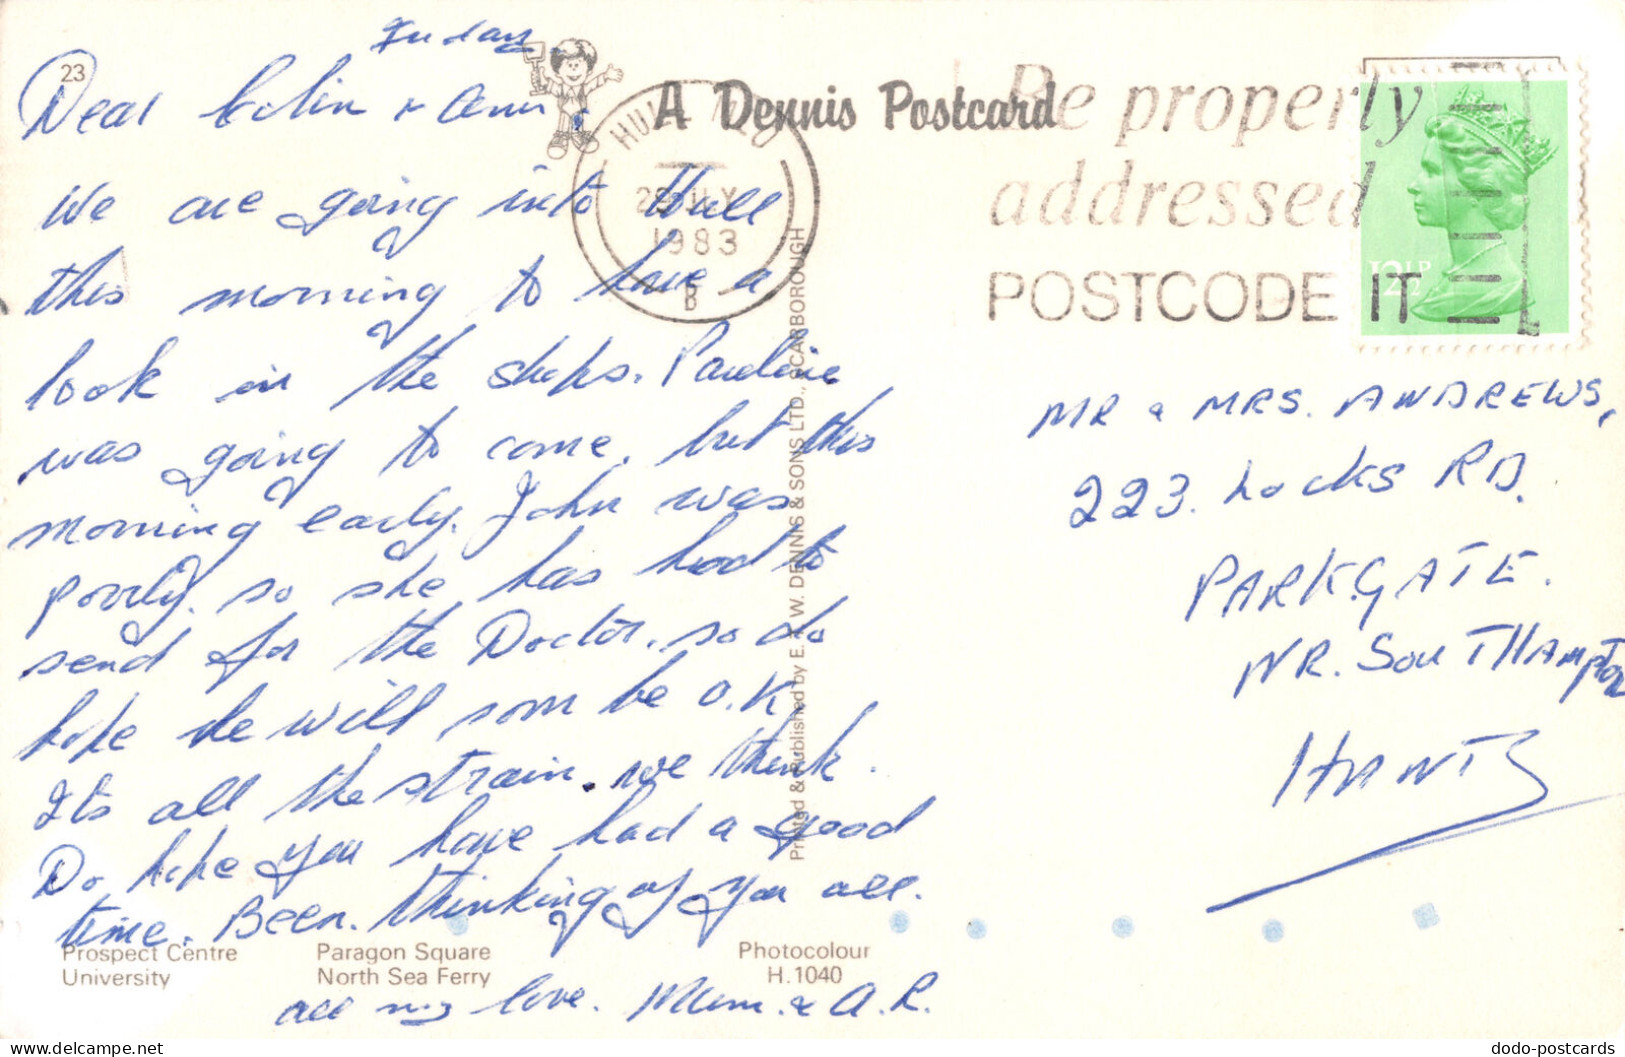 Friday.
23
Dear Colin & Ann,
We are going into Hull
this morning to have a
look in the shops. Pauline
was going to come, but this
morning early. John was
poorly. so she has had to
send for the Doctor. so do
hope he will soon be O.K,
Its all the strain. we think.
Do hope you have had a good
time. Been. thinking of you all.
all my love. Mum. & A.R.
A Dennis Postcard
HULL
JLY
1983
B
Be properly
addressed
POSTCODE IT
12½P
MR & MRS. ANDREWS,
223. Locks RD.
PARKGATE.
NR. SOUTHAMPTON
HANTS
Printed & Published by E. T. W. DENNIS & SONS LTD., SCARBOROUGH
Prospect Centre
University
Paragon Square
North Sea Ferry
Photocolour
H.1040
dodo-postcards
https://www.delcampe.net